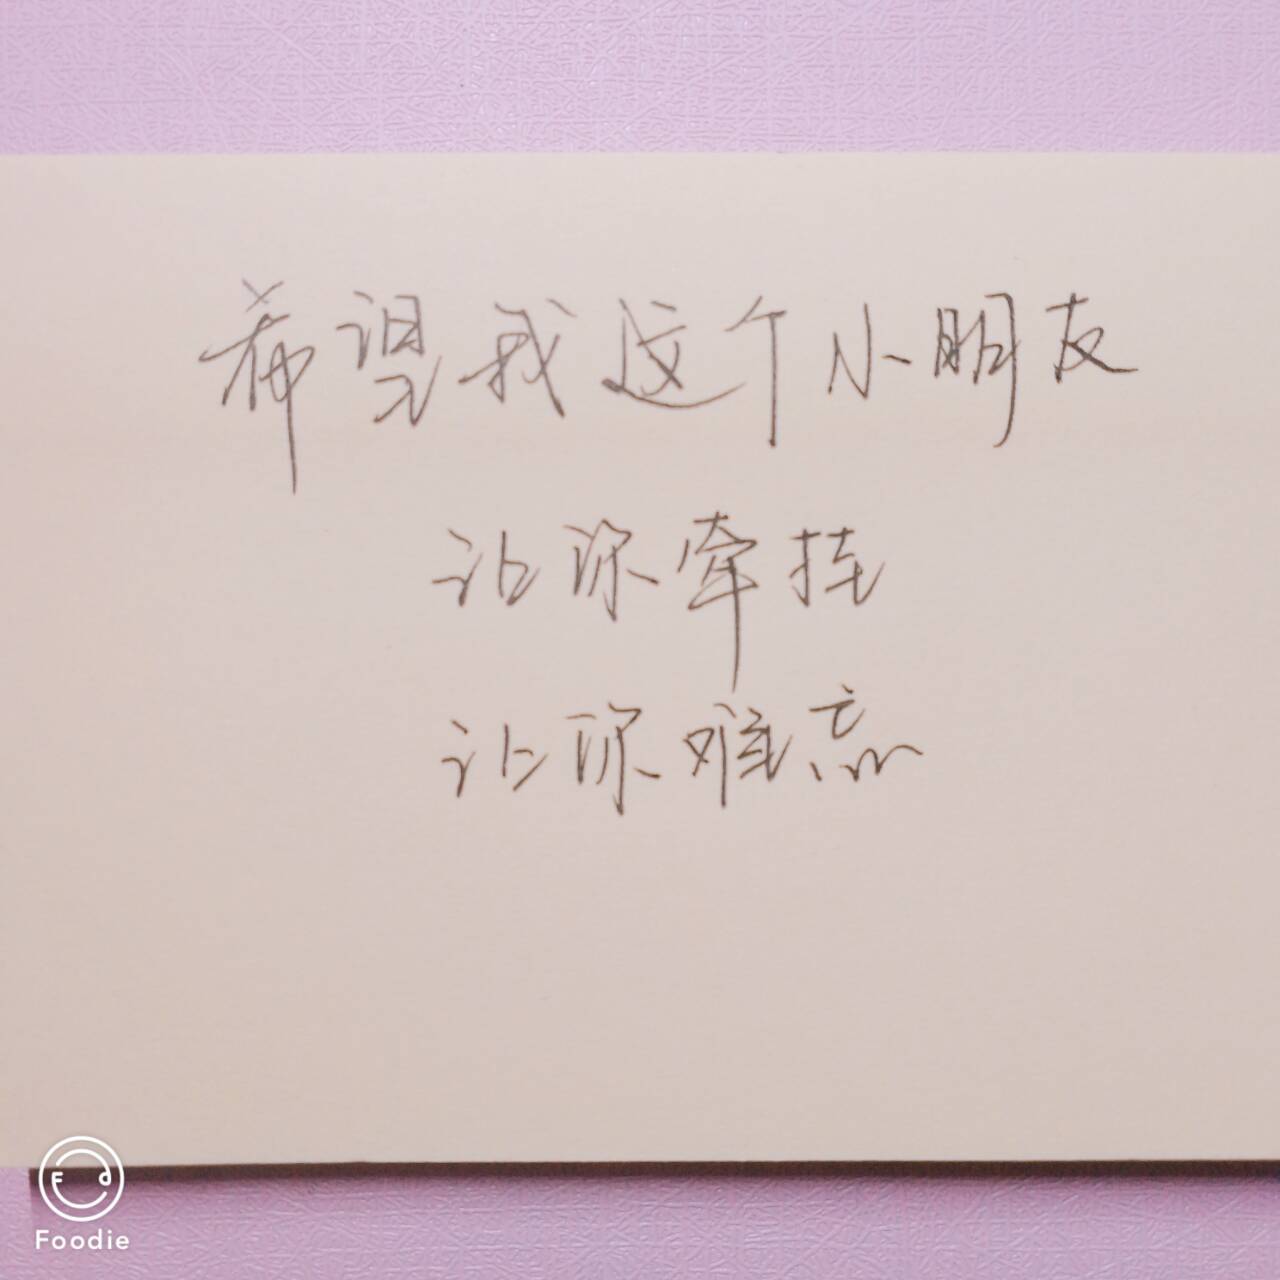 希望我这个小朋友
让你牵挂
让你难忘
Foodie